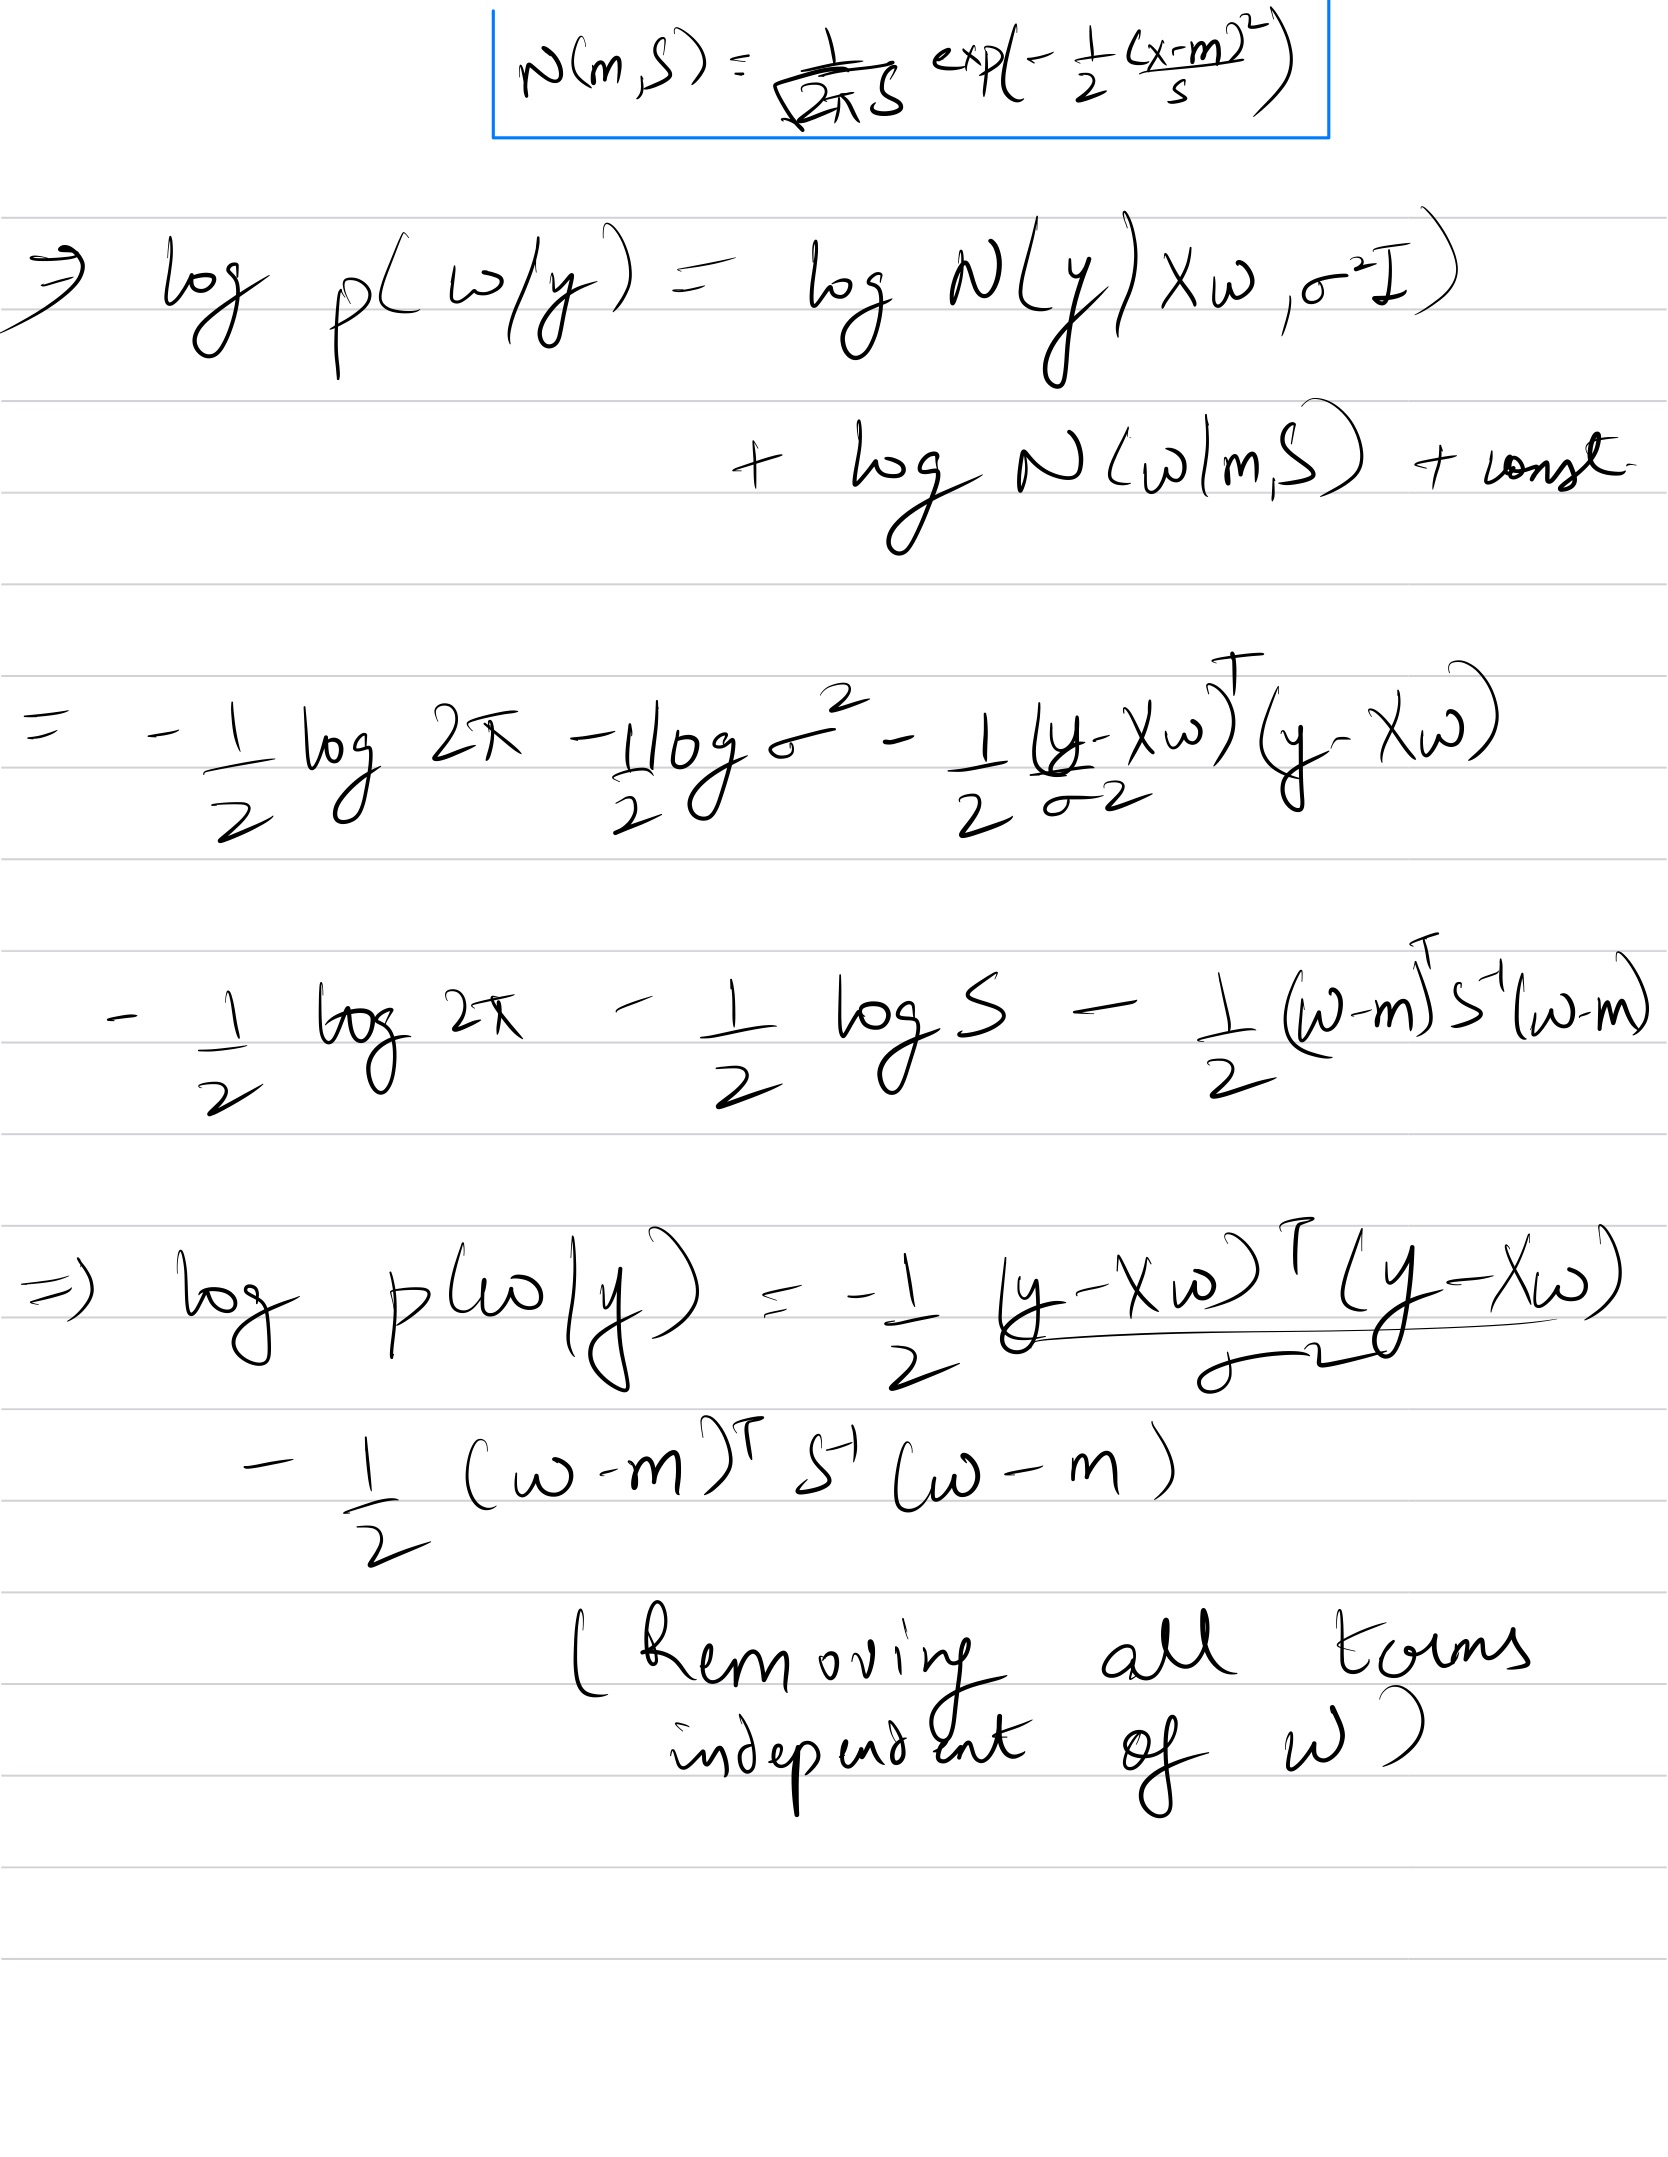 N(m,S) = 1/√2πS exp(-1/2 (x-m)²/s)
⇒ log p(ω/y) = log N(y|Xω,σ²I)
+ log N(ω|m,S) + const.
= -1/2 log 2π -1/2 log σ² - 1/2 (y-Xω)ᵀ(y-Xω)/σ²
- 1/2 log 2π - 1/2 log S - 1/2 (ω-m)ᵀS⁻¹(ω-m)
⇒ log p(ω|y) = -1/2 (y-Xω)ᵀ(y-Xω)/σ²
- 1/2 (ω-m)ᵀ S⁻¹ (ω-m)
(Removing all terms
independent of ω)